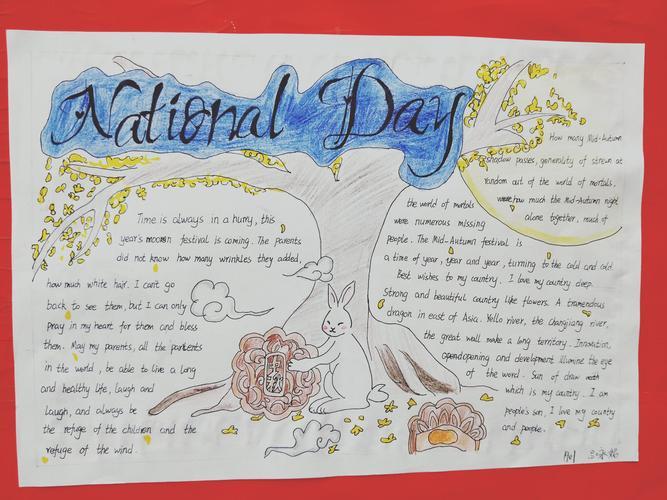 National Day
Time is always in a hurry, this
year's moon festival is coming. The parents
did not know how many wrinkles they added,
how much white hair. I can't go
back to see them, but I can only
pray in my heart for them and bless
them. May my parents, all the parents
in the world, be able to live a long
and healthy life, laugh and
laugh, and always be
the refuge of the children and the
refuge of the wind.
How many Mid-Autumn
shadow passes, generality of strewn at
random out of the world of mortals.
were how much the Mid-Autumn night
alone together, much of
the world of mortals
were numerous missing
people. The Mid-Autumn festival is
a time of year, year and year, turning to the cold and cold.
Best wishes to my country. I love my country deep.
Strong and beautiful country like flowers. A tremendous
dragon in east of Asia. Yello river, the changjiang river,
the great wall make a long territory. Innovation,
opening and development illumine the eye
of the word. Sun of draw
which is my country. I am
people's son, I love my country
and people.